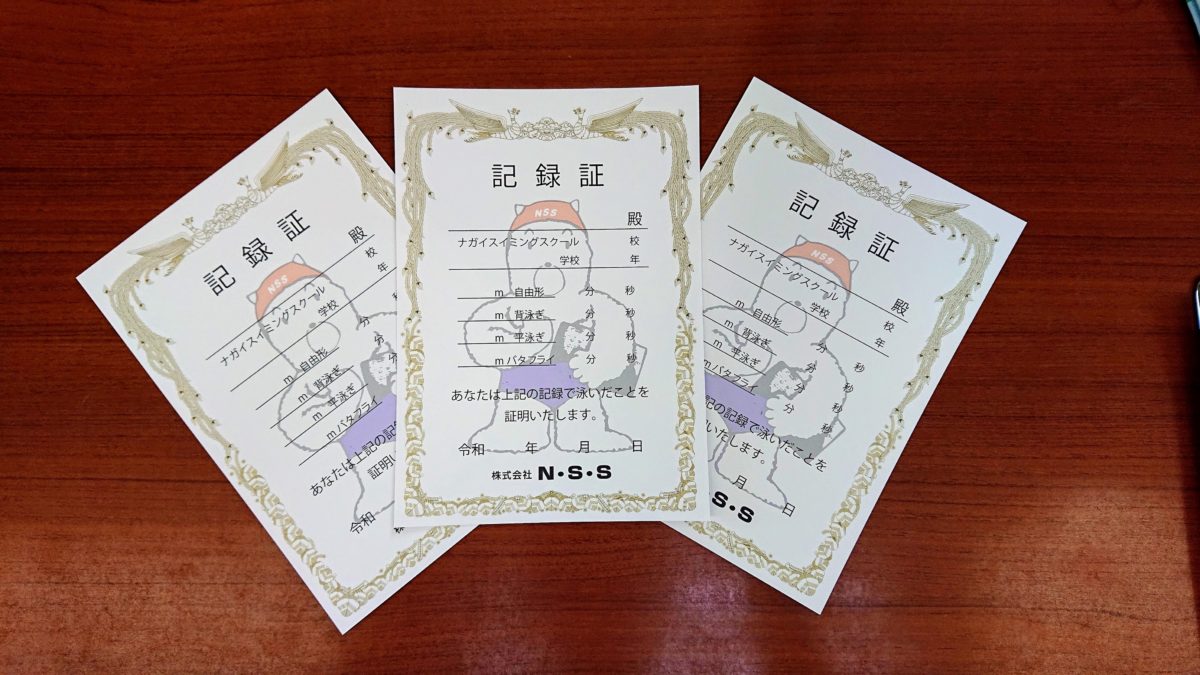 記録証
NSS
殿
校
ナガイスイミングスクール
年
学校
秒
m 自由形 分
m 背泳ぎ 分
m 平泳ぎ
m バタフライ
あなたは上記の記録
証明い
令和
記録証
NSS
殿
ナガイスイミングスクール 校
学校 年
m 自由形 分 秒
m 背泳ぎ 分 秒
m 平泳ぎ 分 秒
m バタフライ 分 秒
あなたは上記の記録で泳いだことを
証明いたします。
令和 年 月 日
株式会社 N・S・S
記録証
NSS
殿
ナガイスイミングスクール 校
学校 年
m 自由形 分 秒
m 背泳ぎ 分 秒
m 平泳ぎ 分 秒
m バタフライ 分 秒
記の記録で泳いだことを
いたします。
月 日
S・S